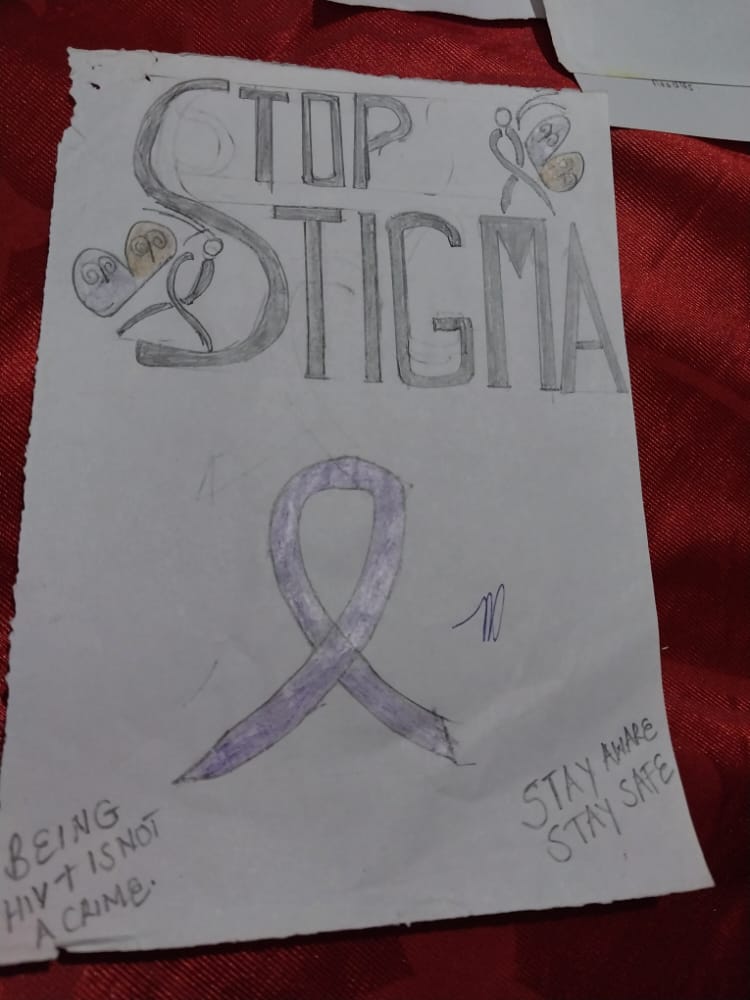 STOP
STIGMA
BEING
HIV+ IS NOT
A CRIME.
STAY AWARE
STAY SAFE